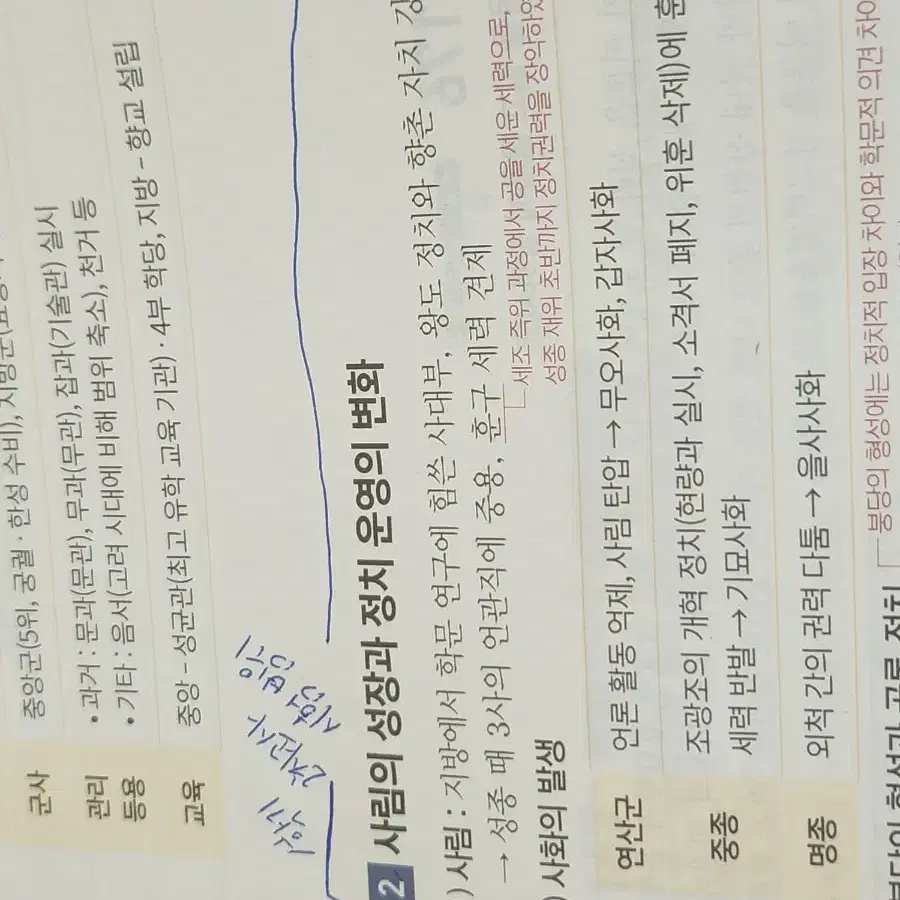 군사
중앙군(5위, 궁궐 · 한성 수비), 지방군
관리
등용
• 과거 : 문과(문관), 무과(무관), 잡과(기술관) 실시
• 기타 : 음서(고려 시대에 비해 범위 축소), 천거 등
교육
중앙 - 성균관(최고 유학 교육 기관) · 4부 학당, 지방 - 향교 설립
2 사림의 성장과 정치 운영의 변화
) 사림 : 지방에서 학문 연구에 힘쓴 사대부, 왕도 정치와 향촌 자치 강
→ 성종 때 3사의 언관직에 중용, 훈구 세력 견제
세조 즉위 과정에서 공을 세운 세력으로,
성종 재위 초반까지 정치권력을 장악하였
) 사화의 발생
연산군
언론 활동 억제, 사림 탄압 → 무오사화, 갑자사화
중종
조광조의 개혁 정치(현량과 실시, 소격서 폐지, 위훈 삭제)에 훈
세력 반발 → 기묘사화
명종
외척 간의 권력 다툼 → 을사사화
붕당의 형성에는 정치적 입장 차이와 학문적 의견 차이
붕당의 형성과 공론 정치